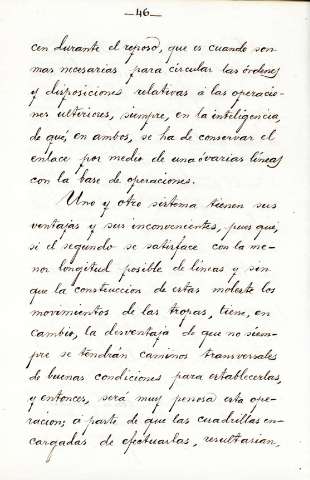 —46—
cen durante el reposo, que es cuando son
mas necesarias para circular las órdenes
y disposiciones relativas á las operacio-
nes ulteriores, siempre, en la inteligencia,
de que, en ambos, se ha de conservar el
enlace por medio de una ó varias líneas
con la base de operaciones.
Uno y otro sistema tienen sus
ventajas y sus inconvenientes, pues que,
si el segundo se satisface con la me-
nor longitud posible de líneas y sin
que la construccion de estas moleste los
movimientos de las tropas, tiene, en
cambio, la desventaja de que no siem-
pre se tendrán caminos transversales
de buenas condiciones para establecerlas,
y entonces, será muy penosa esta ope-
racion; á parte de que las cuadrillas en-
cargadas de efectuarlas, resultarian,